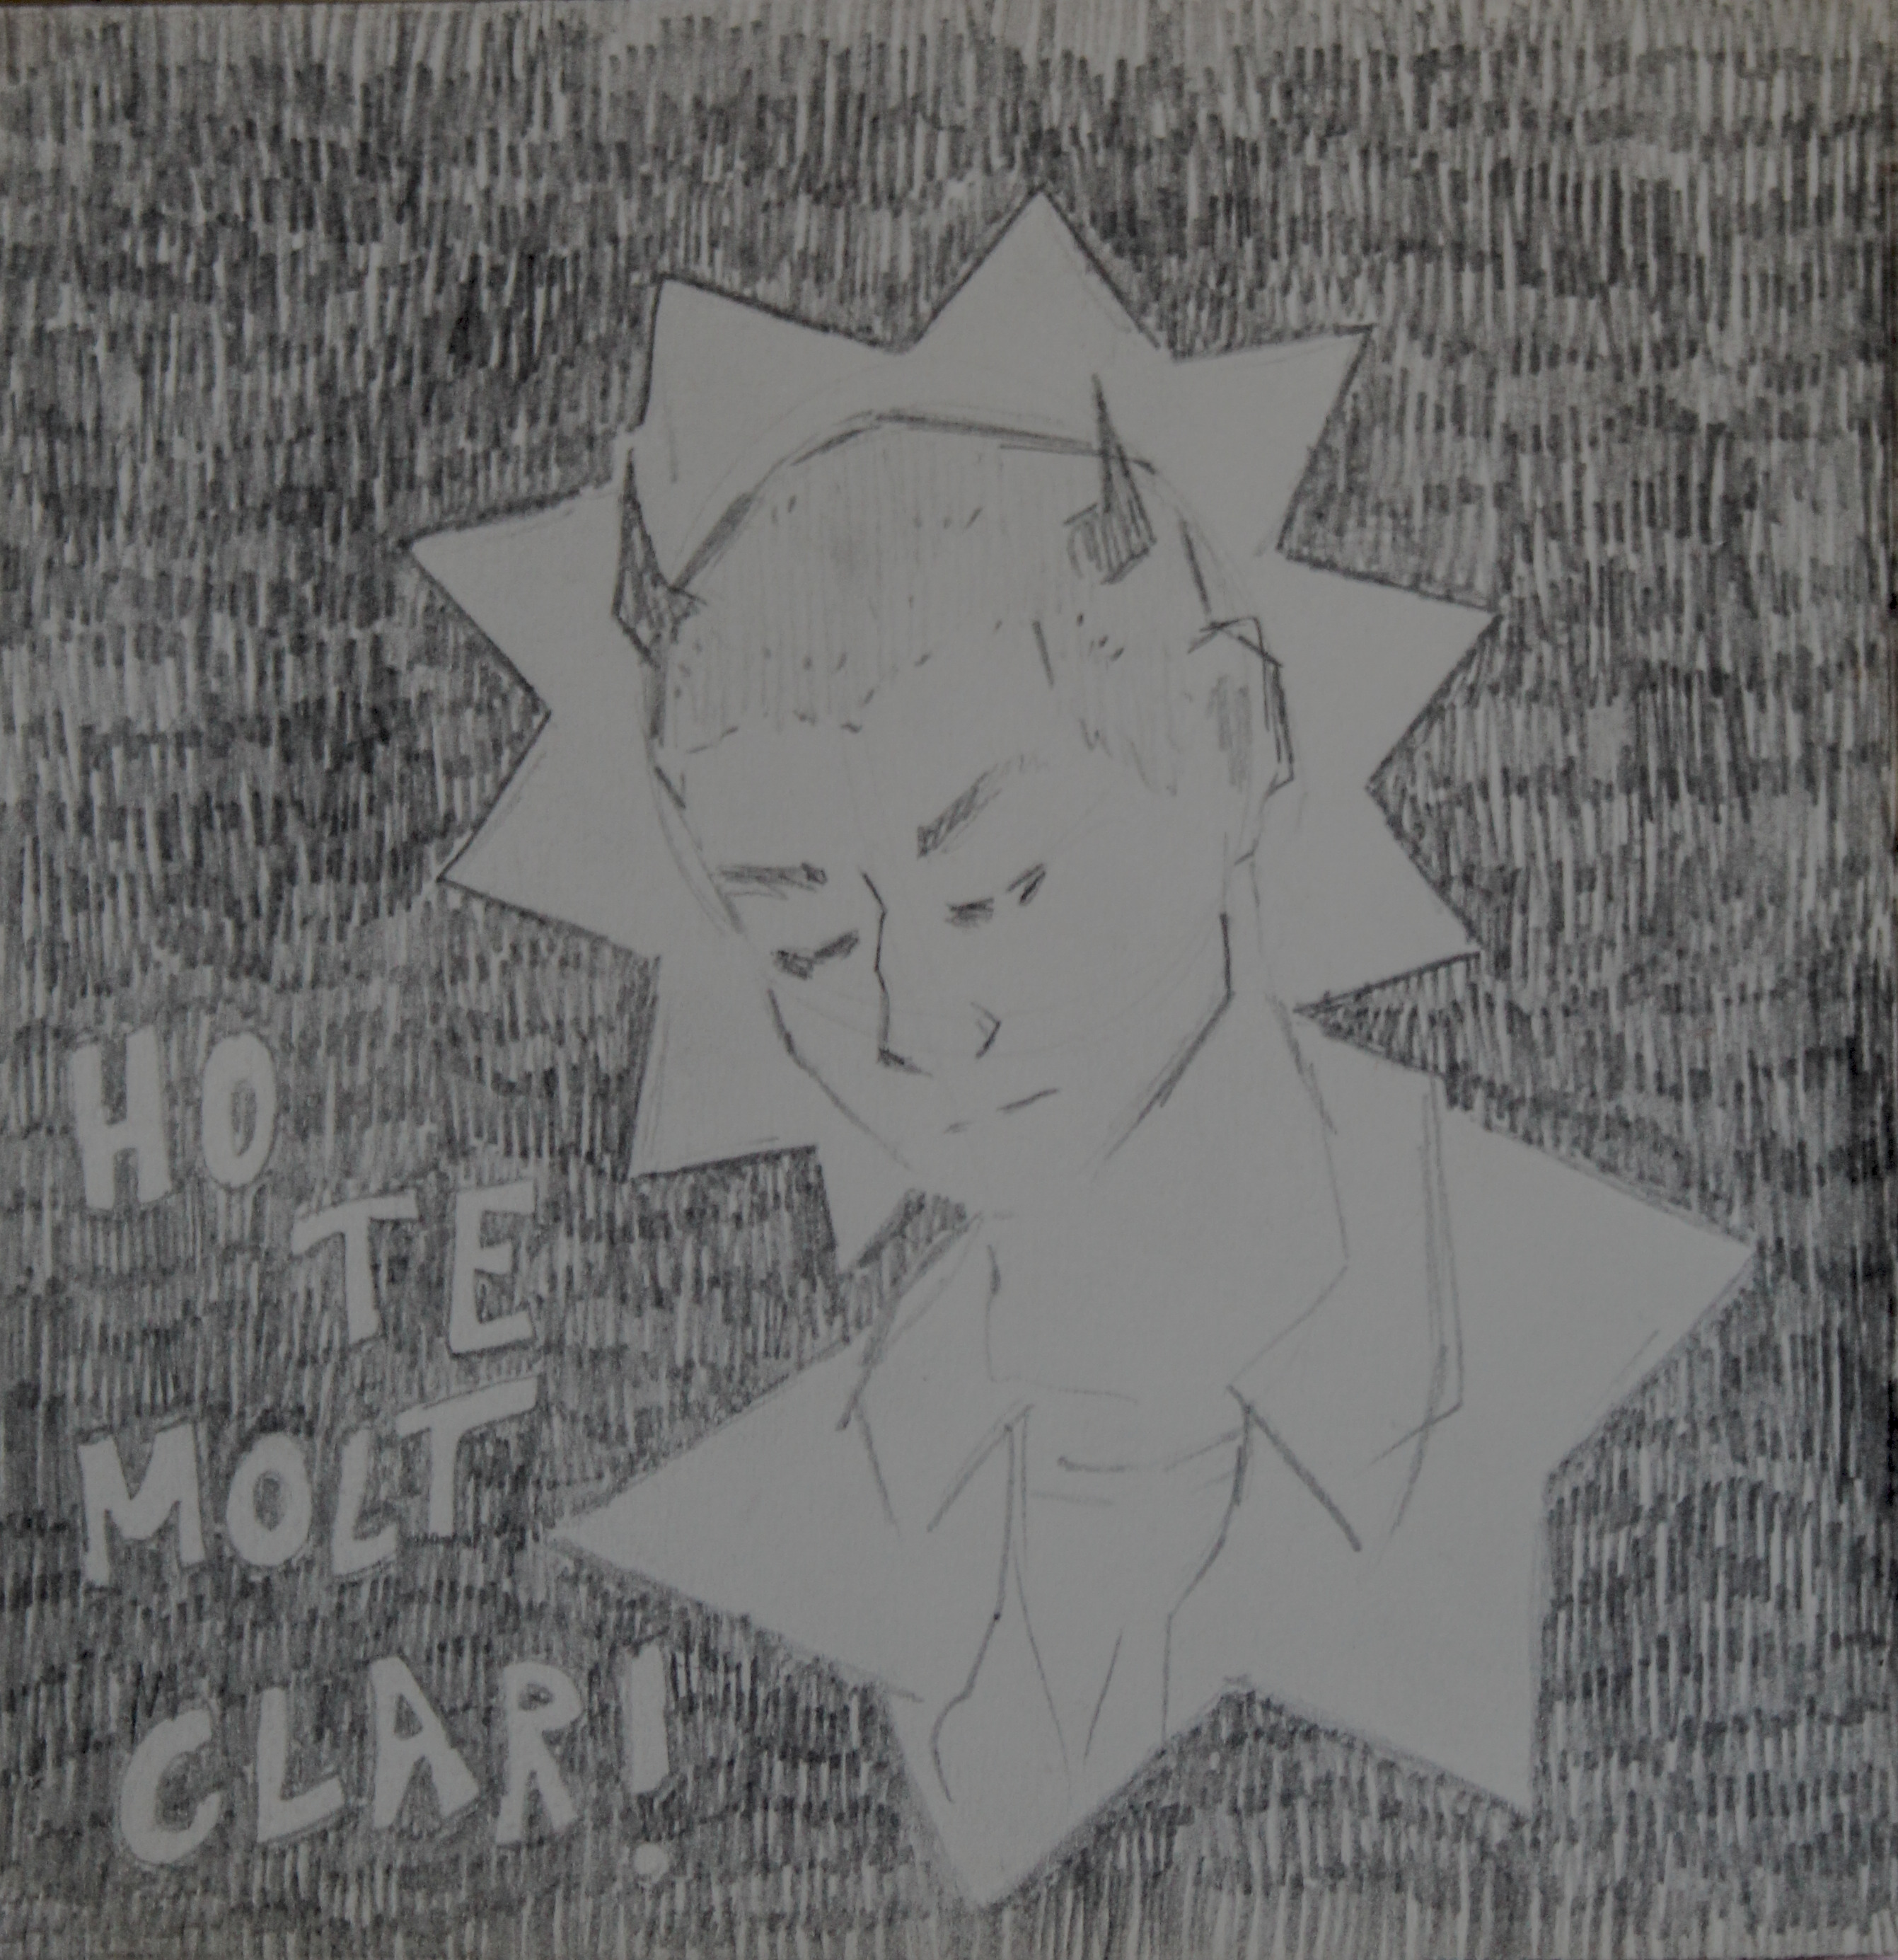 HO
TE
MOLT
CLAR!